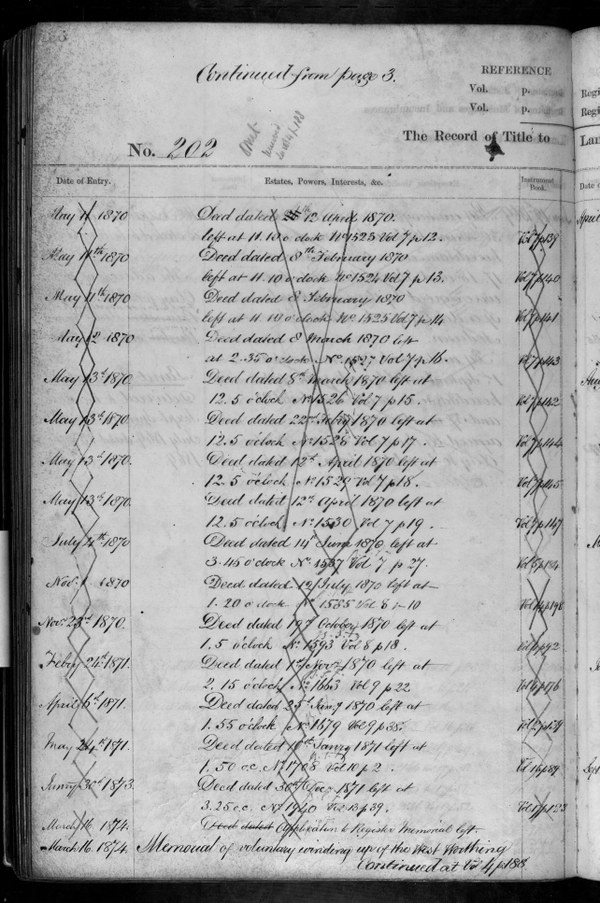 Continued from page 3.
REFERENCE
Vol. p.
Vol. p.
No. 202
The Record of Title to
Date of Entry.
Estates, Powers, Interests, &c.
Instrument Book.
May 11 1870 Deed dated 12 April 1870.
left at 11.10 o'clock No 1523 Vol 7 p 12. Vol 7 p 139
May 11th 1870 Deed dated 8th February 1870
left at 11.10 o'clock No 1524 Vol 7 p 13. Vol 7 p 140
May 11th 1870 Deed dated 8 February 1870
left at 11.10 o'clock No 1525 Vol 7 p 14 Vol 7 p 141
May 12 1870 Deed dated 8 March 1870 left
at 2.35 o'clock No 1527 Vol 7 p 16. Vol 7 p 143
May 13th 1870. Deed dated 8th March 1870 left at
12.5 o'clock No 1526 Vol 7 p 15. Vol 7 p 142
May 13th 1870. Deed dated 22nd Feby 1870 left at
12.5 o'clock No 1528 Vol 7 p 17. Vol 7 p 144
May 13th 1870. Deed dated 12th April 1870 left at
12.5 o'clock No 1529 Vol 7 p 18. Vol 7 p 145
May 13th 1870. Deed dated 12th April 1870 left at
12.5 o'clock No 1530 Vol 7 p 19. Vol 7 p 147
July 4th 1870 Deed dated 14th June 1870 left at
3.45 o'clock No 1557 Vol 7 p 27.
Novr 1 1870 Deed dated 12 July 1870 left at
1.20 o'clock No 1585 Vol 8 p 10
Novr 23rd 1870. Deed dated 19th October 1870 left at
1.5 o'clock No 1593 Vol 8 p 18.
Feby 24th 1871. Deed dated 1st Novr 1870 left at
2.15 o'clock No 1663 Vol 9 p 22
April 6th 1871. Deed dated 25th Jany 1870 left at
1.55 o'clock No 1679 Vol 9 p 38.
May 24th 1871. Deed dated 10th Jany 1871 left at
1.50 o.c. No 1708 Vol 10 p 2.
Jany 30th 1873. Deed dated 30th Decr 1871 left at
3.25 o.c. No 1940 Vol 13 p 39.
March 16 1874. Deed dated Application to Register Memorial left
March 16. 1874. Memorial of voluntary winding up of the West Worthing
Continued at Vol 4 p 188